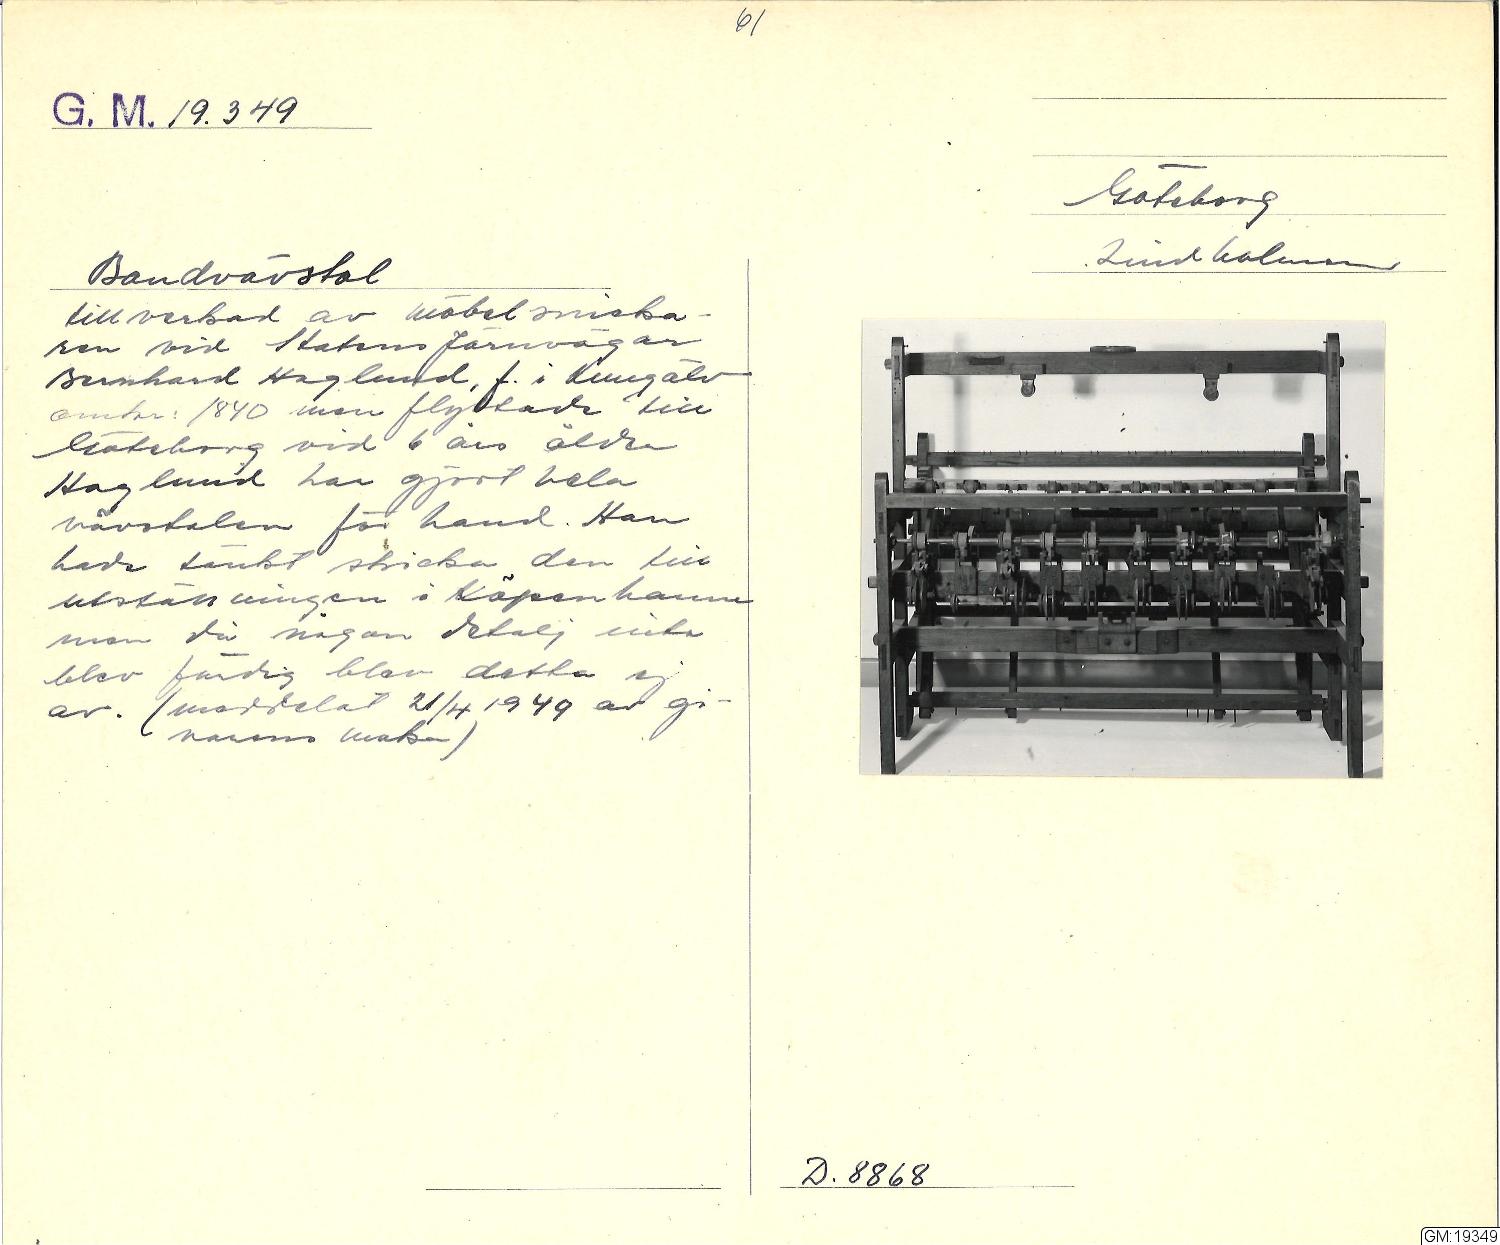 61
G. M. 19.349
Göteborg
Lindholmen
Bandvävstol
tillverkad av möbelsnicka-
ren vid Statens Järnvägar
Bernhard Haglund, f. i Kungälv
omkr: 1840 men flyttade till
Göteborg vid 6 års ålder
Haglund har gjort hela
vävstolen för hand. Han
hade tänkt skicka den till
utställningen i Köpenhamn
men då någon detalj inte
blev färdig blev detta ej
av. (meddelat 21/4 1949 av gi-
varens maka)
D. 8868
GM:19349